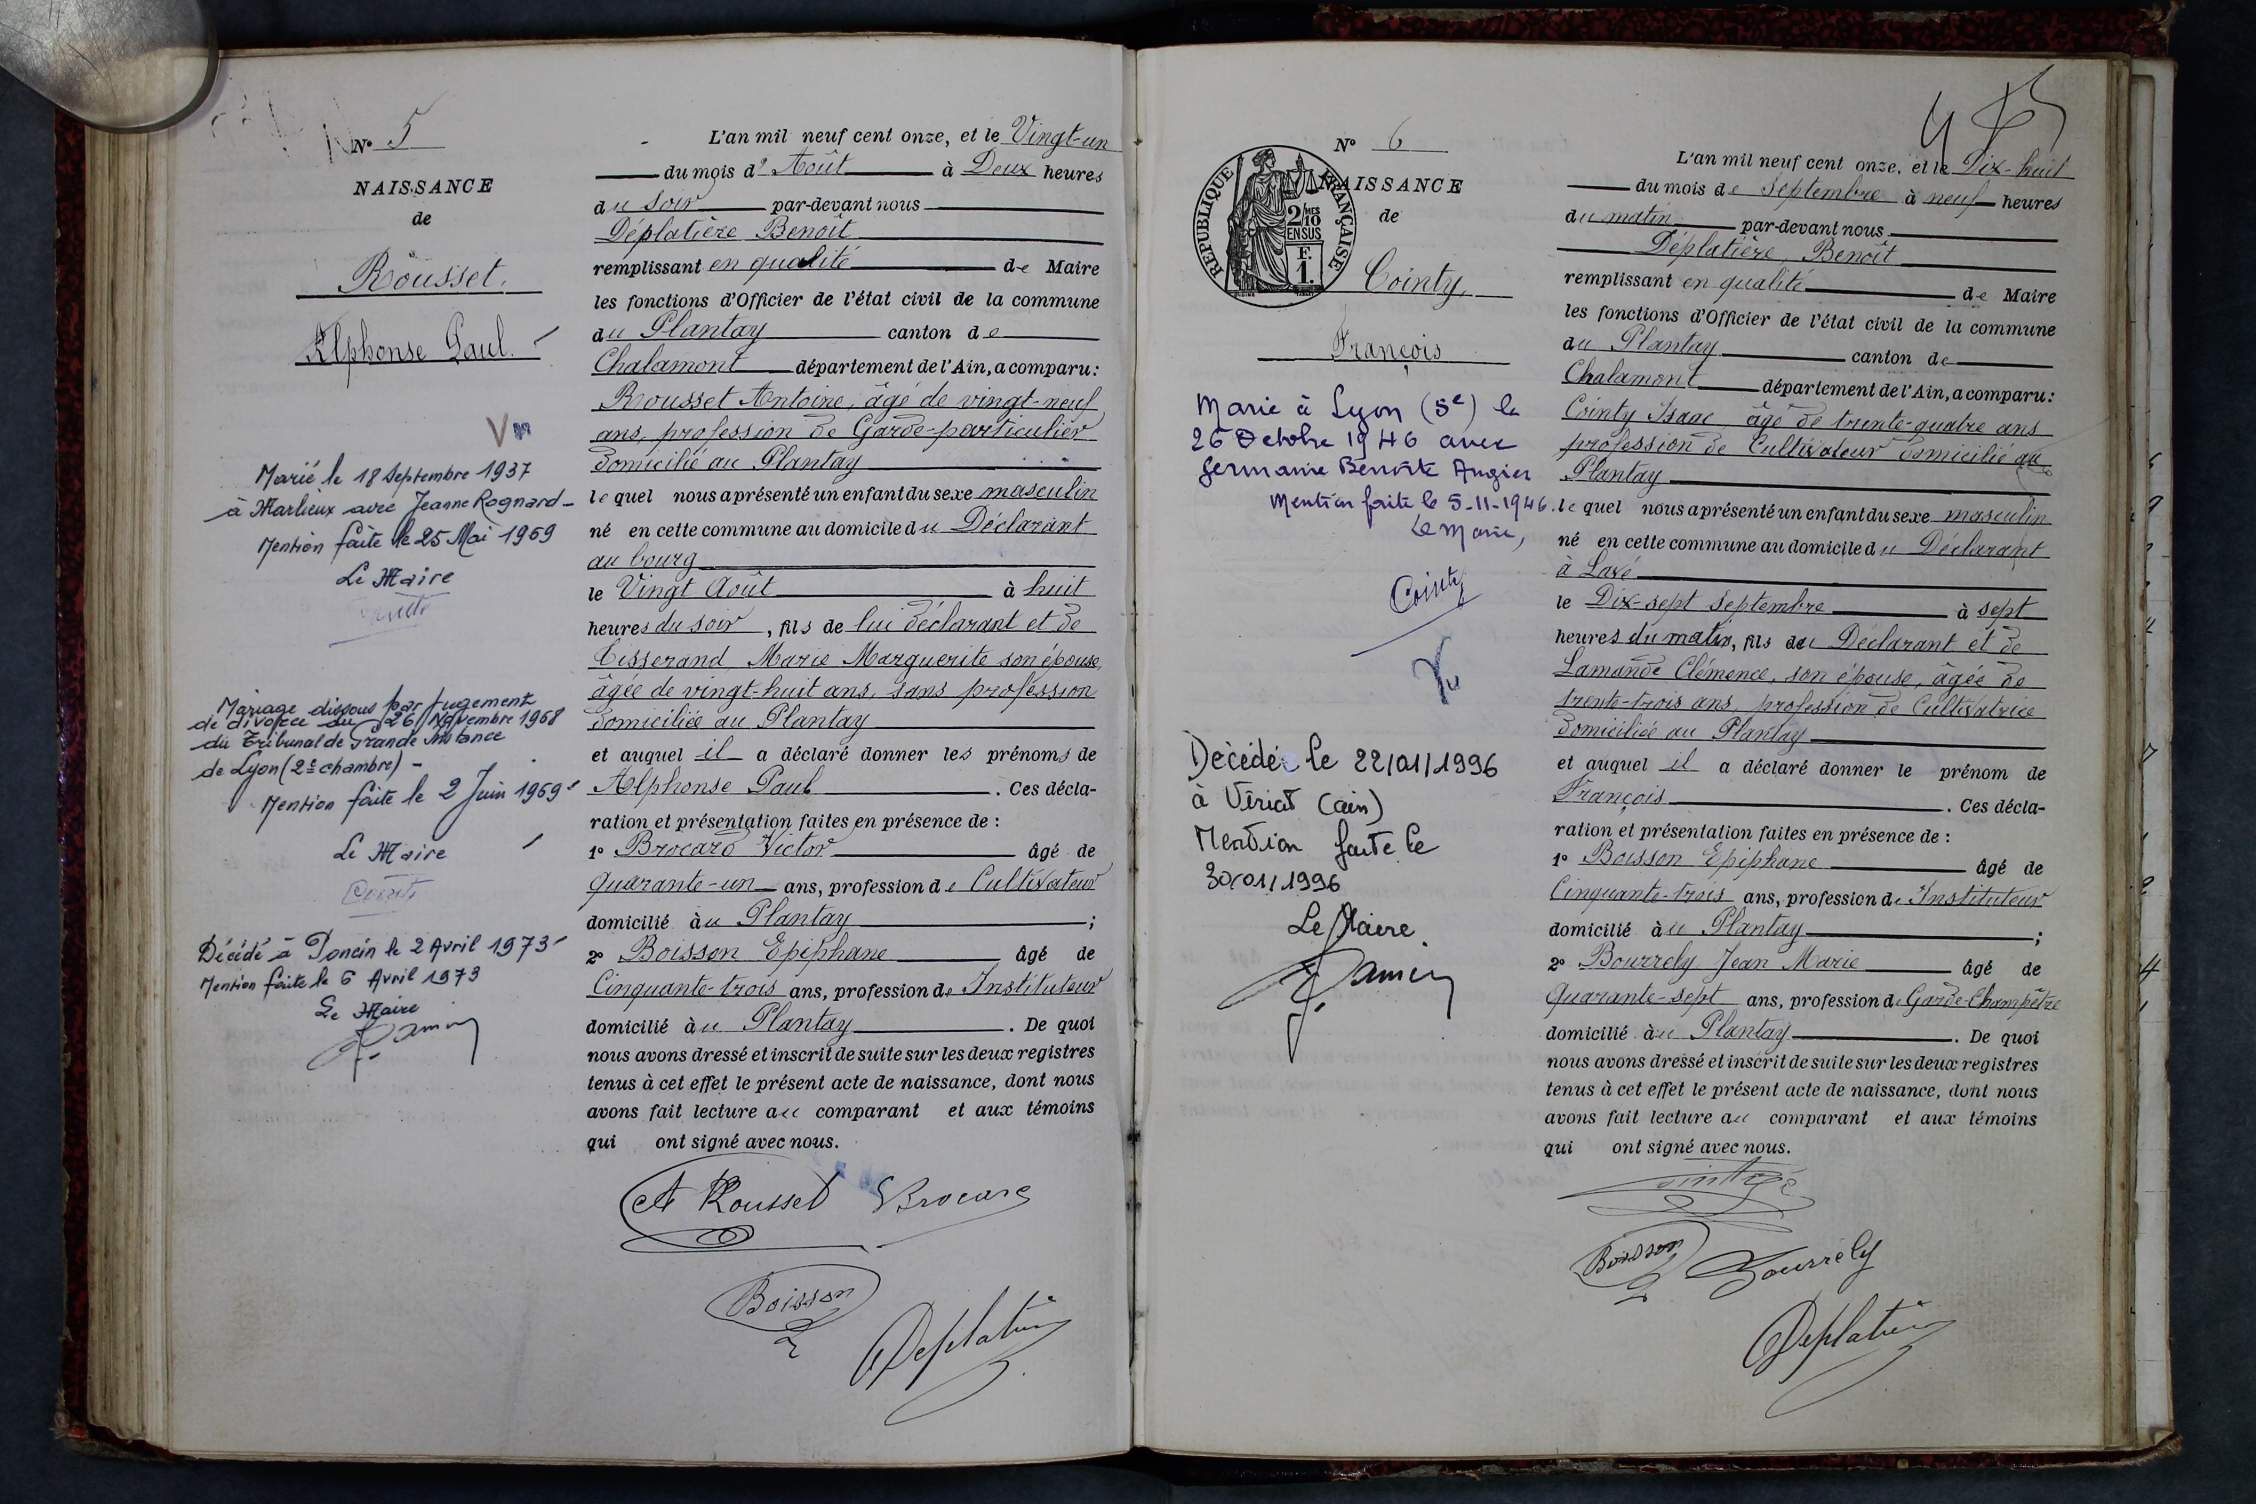 N° 5
NAISSANCE
de
Rousset.
Alphonse Paul.
Vu
Marié le 18 Septembre 1937
à Marlieux avec Jeanne Rognard -
Mention faite le 25 Mai 1969
Le Maire
Mariage dissous par jugement
de divorce du 26 Novembre 1968
du Tribunal de Grande Instance
de Lyon (2e chambre) -
Mention faite le 2 Juin 1969
Le Maire
Décédé à Poncin le 2 Avril 1973
Mention faite le 6 Avril 1973
Le Maire
L'an mil neuf cent onze, et le Vingt-un
du mois d' Août à Deux heures
du soir par-devant nous
Déplatière Benoît
remplissant en qualité de Maire
les fonctions d'Officier de l'état civil de la commune
du Plantay canton de
Chalamont département de l'Ain, a comparu:
Rousset Antoine, âgé de vingt-neuf
ans, profession de Garde-particulier
domicilié au Plantay
le quel nous a présenté un enfant du sexe masculin
né en cette commune au domicile du Déclarant
au bourg
le Vingt Août à huit
heures du soir, fils de lui déclarant et de
Tisserand Marie Marguerite son épouse,
âgée de vingt-huit ans, sans profession
domiciliée au Plantay
et auquel il a déclaré donner les prénoms de
Alphonse Paul. Ces décla-
ration et présentation faites en présence de :
1° Brocard Victor âgé de
quarante-un ans, profession de Cultivateur
domicilié au Plantay ;
2° Boisson Epiphane âgé de
Cinquante-trois ans, profession de Instituteur
domicilié au Plantay. De quoi
nous avons dressé et inscrit de suite sur les deux registres
tenus à cet effet le présent acte de naissance, dont nous
avons fait lecture au comparant et aux témoins
qui ont signé avec nous.
A Rousset Brocard
Boisson
Deplatière
N° 6
NAISSANCE
de
RÉPUBLIQUE FRANÇAISE
2/10 MES
EN SUS
F.
1.
Cointy,
François
Marié à Lyon (5e) le
26 Octobre 1946 avec
Germaine Benoîte Augier
Mention faite le 5-11-1946.
Le Maire,
Cointy
Vu
Décédé le 22/01/1996
à Viriat (ain)
Mention faite le
30/01/1996
Le Maire
L'an mil neuf cent onze, et le Dix-huit
du mois de Septembre à neuf heures
du matin par-devant nous
Déplatière, Benoît
remplissant en qualité de Maire
les fonctions d'Officier de l'état civil de la commune
du Plantay canton de
Chalamont département de l'Ain, a comparu:
Cointy Isaac âgé de trente-quatre ans
profession de Cultivateur domicilié au
Plantay
le quel nous a présenté un enfant du sexe masculin
né en cette commune au domicile du Déclarant
à Lavé
le Dix-sept Septembre à sept
heures du matin, fils du Déclarant et de
Lamande Clémence, son épouse, âgée de
trente-trois ans, profession de Cultivatrice
domiciliée au Plantay
et auquel il a déclaré donner le prénom de
François. Ces décla-
ration et présentation faites en présence de :
1° Boisson Epiphane âgé de
Cinquante-trois ans, profession de Instituteur
domicilié au Plantay ;
2° Bourrely Jean Marie âgé de
quarante-sept ans, profession de Garde-Champêtre
domicilié au Plantay. De quoi
nous avons dressé et inscrit de suite sur les deux registres
tenus à cet effet le présent acte de naissance, dont nous
avons fait lecture au comparant et aux témoins
qui ont signé avec nous.
Boisson Bourrely
Deplatière